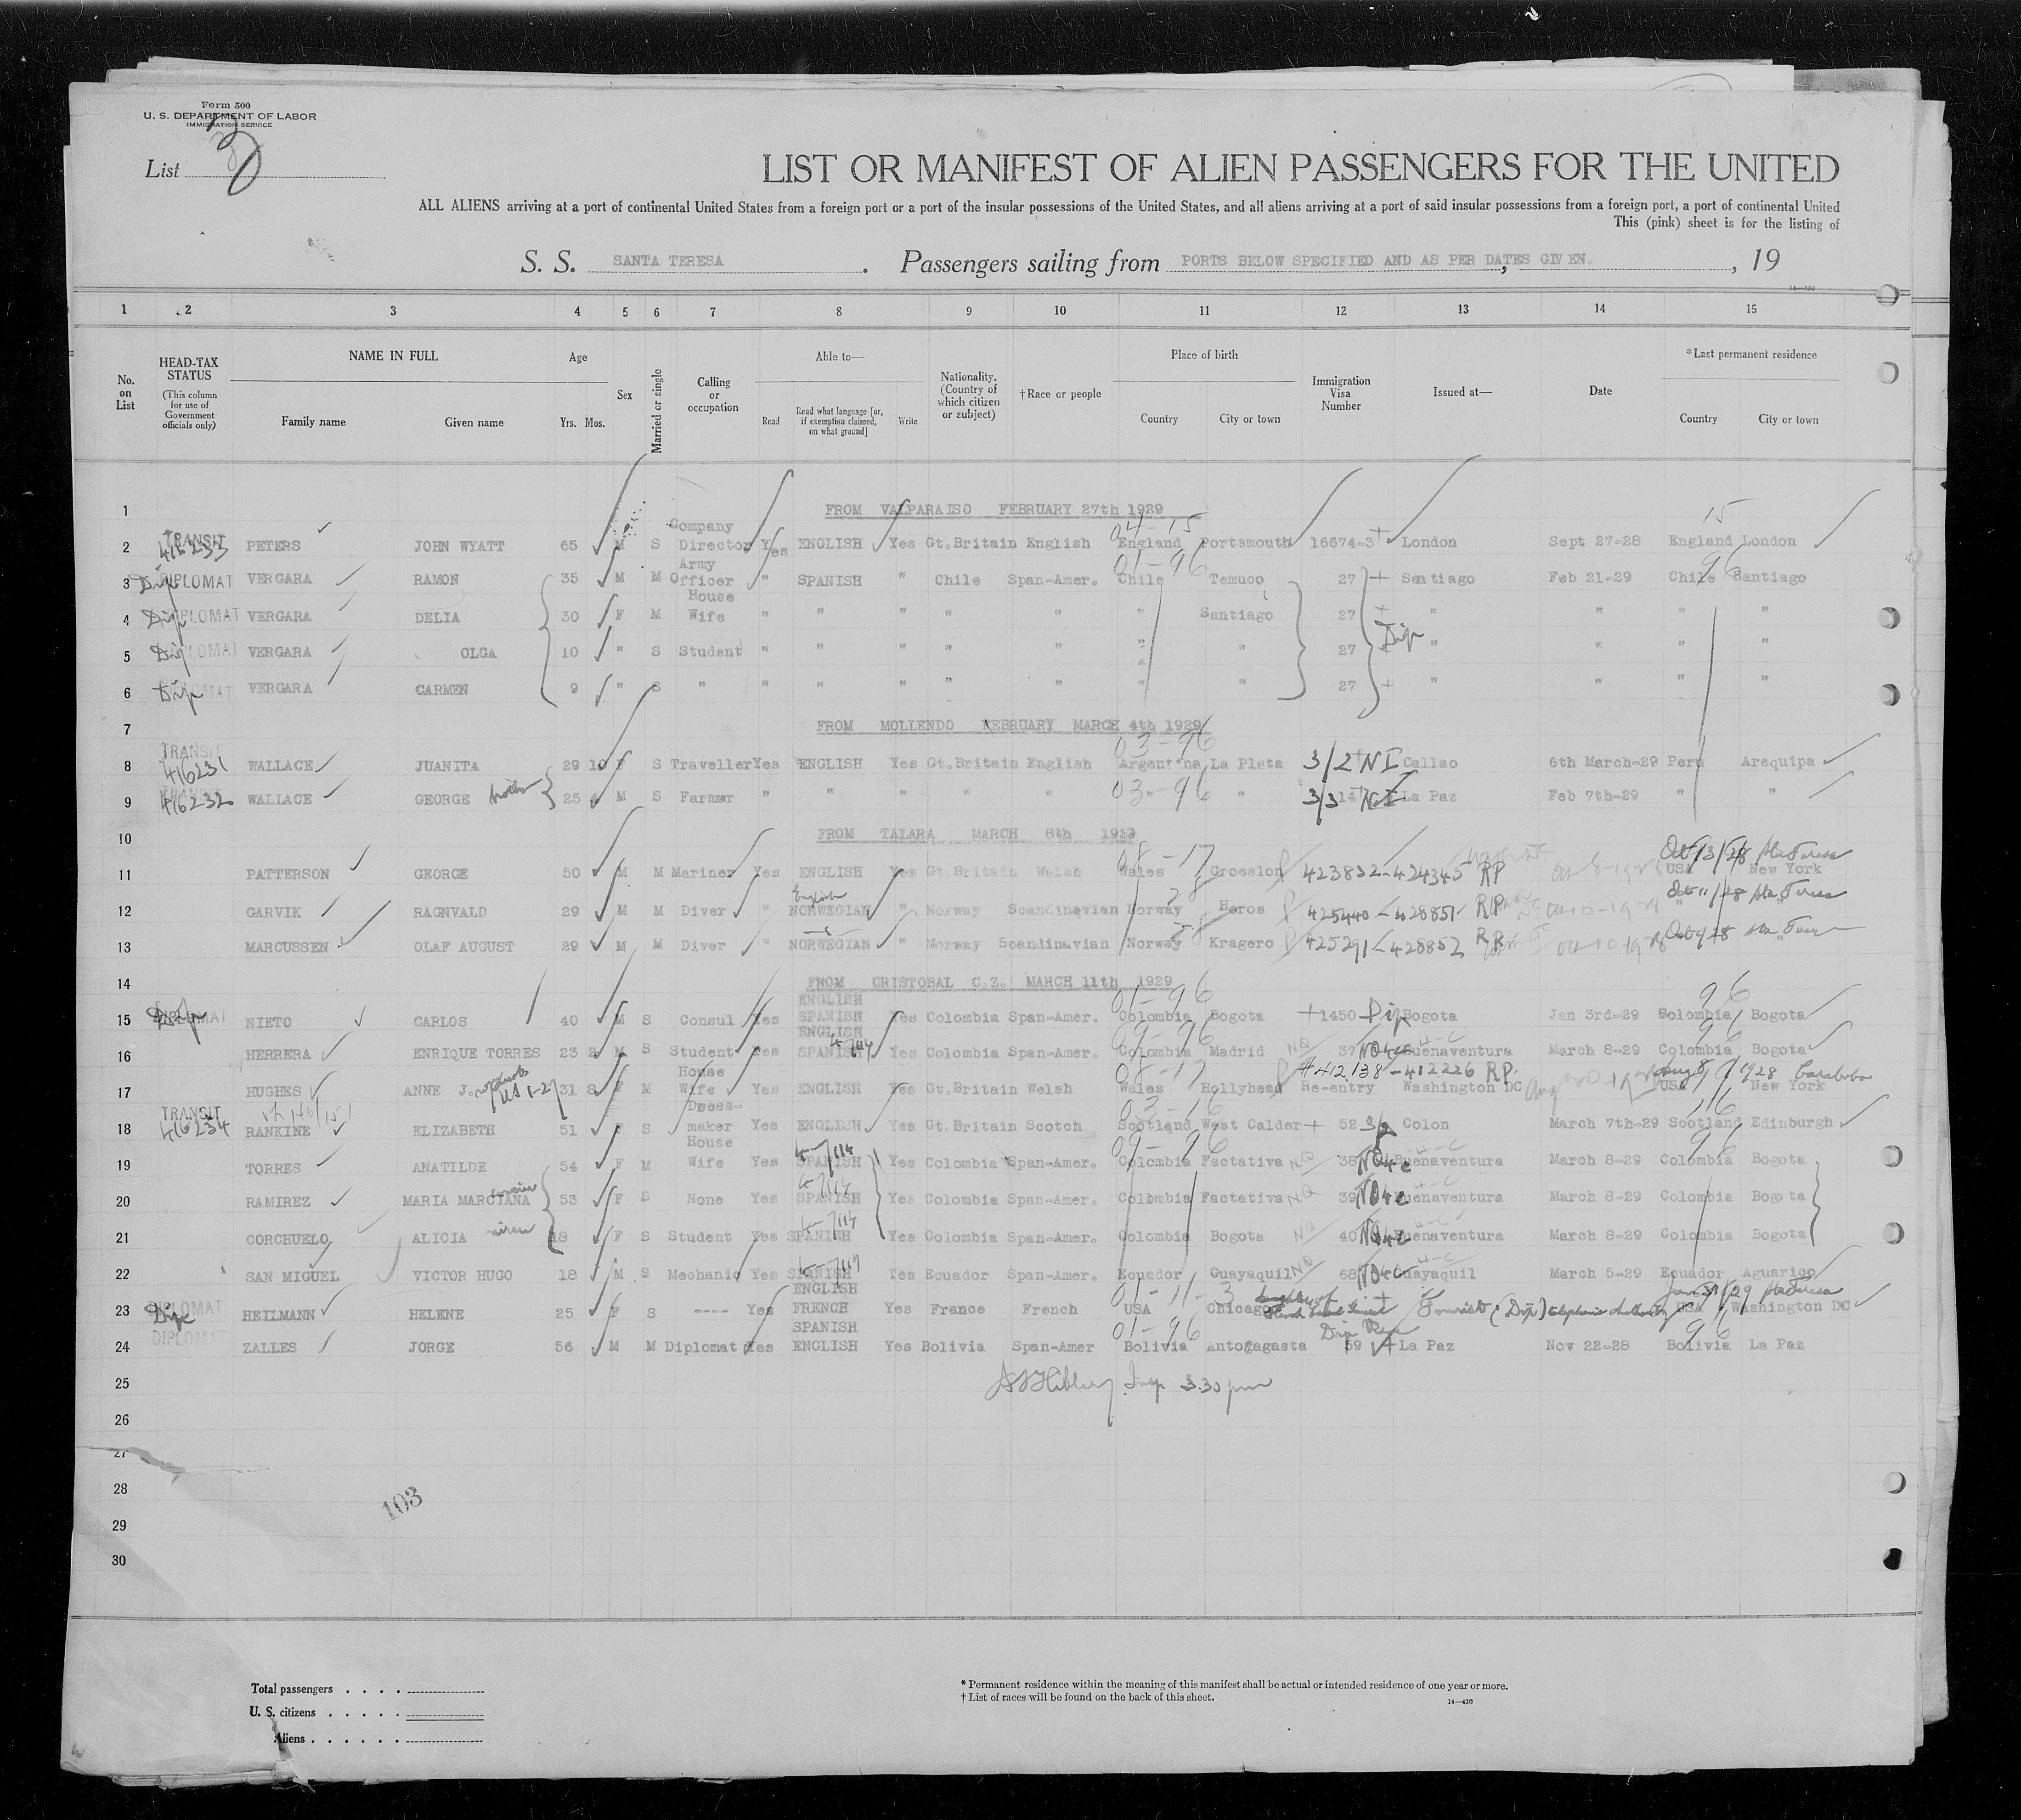 Form 500
U. S. DEPARTMENT OF LABOR
IMMIGRATION SERVICE
List
LIST OR MANIFEST OF ALIEN PASSENGERS FOR THE UNITED
ALL ALIENS arriving at a port of continental United States from a foreign port or a port of the insular possessions of the United States, and all aliens arriving at a port of said insular possessions from a foreign port, a port of continental United
This (pink) sheet is for the listing of
S. S. SANTA TERESA . Passengers sailing from PORTS BELOW SPECIFIED AND AS PER DATES GIVEN. , 19
14—430
1 2 3 4 5 6 7 8 9 10 11 12 13 14 15
No. on List
HEAD-TAX STATUS (This column for use of Government officials only)
NAME IN FULL
Family name Given name
Age Yrs. Mos.
Sex
Married or single
Calling or occupation
Able to—
Read Read what language [or, if exemption claimed, on what ground] Write
Nationality. (Country of which citizen or subject)
†Race or people
Place of birth
Country City or town
Immigration Visa Number
Issued at—
Date
*Last permanent residence
Country City or town
1 FROM VALPARAISO FEBRUARY 27th 1929
04-15 15
2 TRANSIT 416233 PETERS JOHN WYATT 65 M S Company Director Yes ENGLISH Yes Gt.Britain English England Portsmouth 16674-3 London Sept 27-28 England London
01-96 96
3 Dip DIPLOMAT VERGARA RAMON 35 M M Army Officer " SPANISH " Chile Span-Amer. Chile Temuco 27 Santiago Feb 21-29 Chile Santiago
4 Dip DIPLOMAT VERGARA DELIA 30 F M House Wife " " " " " " Santiago 27 " " " "
5 Dip DIPLOMAT VERGARA OLGA 10 " S Student " " " " " " " 27 Dip " " " "
6 Dip DIPLOMAT VERGARA CARMEN 9 " S " " " " " " " " 27 " " " "
7 FROM MOLLENDO FEBRUARY MARCH 4th 1929
03-96
8 TRANSIT 416231 WALLACE JUANITA 29 10 F S Traveller Yes ENGLISH Yes Gt.Britain English Argentina La Plata 3/2 NI Callao 6th March-29 Peru Arequipa
9 TRANSIT 416232 WALLACE GEORGE brother 25 M S Farmer " " " " " 03-96 " " 3/3 14 NI La Paz Feb 7th-29 " "
10 FROM TALARA MARCH 8th 1929
08-17
11 PATTERSON GEORGE 50 M M Mariner Yes ENGLISH Yes Gt.Britain Welsh Wales Croeslon 423832-424345 RP Oct 13/28 USA New York
12 GARVIK RAGNVALD 29 M M Diver " English NORWEGIAN " Norway Scandinavian Norway Heros 425440-428851 RP
13 MARCUSSEN OLAF AUGUST 29 M M Diver " NORWEGIAN " Norway Scandinavian Norway Kragero 425291-428852 RP
14 FROM CRISTOBAL C.Z. MARCH 11th 1929
01-96 96
15 Dip DIPLOMAT NIETO CARLOS 40 M S Consul Yes ENGLISH SPANISH Yes Colombia Span-Amer. Colombia Bogota 1450 Dip Bogota Jan 3rd-29 Colombia Bogota
09-96 96
16 HERRERA ENRIQUE TORRES 23 2 M S Student Yes ENGLISH SPANISH Yes Colombia Span-Amer. Colombia Madrid 37 NQ 4c Buenaventura March 8-29 Colombia Bogota
17 HUGHES ANNE J. 31 8 F M House Wife Yes ENGLISH Yes Gt.Britain Welsh Wales Hollyhead 412138-412226 RP Re-entry Washington DC USA New York
03-16 16
18 TRANSIT 416234 RANKINE ELIZABETH 51 F S Dress-maker Yes ENGLISH Yes Gt.Britain Scotch Scotland West Calder 52 Colon March 7th-29 Scotland Edinburgh
09-96 96
19 TORRES ANATILDE 54 F M House Wife Yes SPANISH Yes Colombia Span-Amer. Colombia Factativa 38 NQ 4c Buenaventura March 8-29 Colombia Bogota
20 RAMIREZ MARIA MARCIANA 53 F S None Yes SPANISH Yes Colombia Span-Amer. Colombia Factativa 39 NQ 4c Buenaventura March 8-29 Colombia Bogota
21 CORCHUELO ALICIA niece 18 F S Student Yes SPANISH Yes Colombia Span-Amer. Colombia Bogota 40 NQ 4c Buenaventura March 8-29 Colombia Bogota
22 SAN MIGUEL VICTOR HUGO 18 M S Mechanic Yes SPANISH Yes Ecuador Span-Amer. Ecuador Guayaquil 68 NQ 4c Guayaquil March 5-29 Ecuador Aguarico
23 Dip DIPLOMAT HEILMANN HELENE 25 F S ---- Yes ENGLISH FRENCH Yes France French USA Chicago USA Washington DC
01-96 96
24 DIPLOMAT ZALLES JORGE 56 M M Diplomat Yes SPANISH ENGLISH Yes Bolivia Span-Amer Bolivia Antofagasta 59 La Paz Nov 22-28 Bolivia La Paz
25 Insp 3.30 pm
26
27
28
103
29
30
Total passengers . . . .
U. S. citizens . . . . .
Aliens . . . . . .
* Permanent residence within the meaning of this manifest shall be actual or intended residence of one year or more.
† List of races will be found on the back of this sheet.
14—430